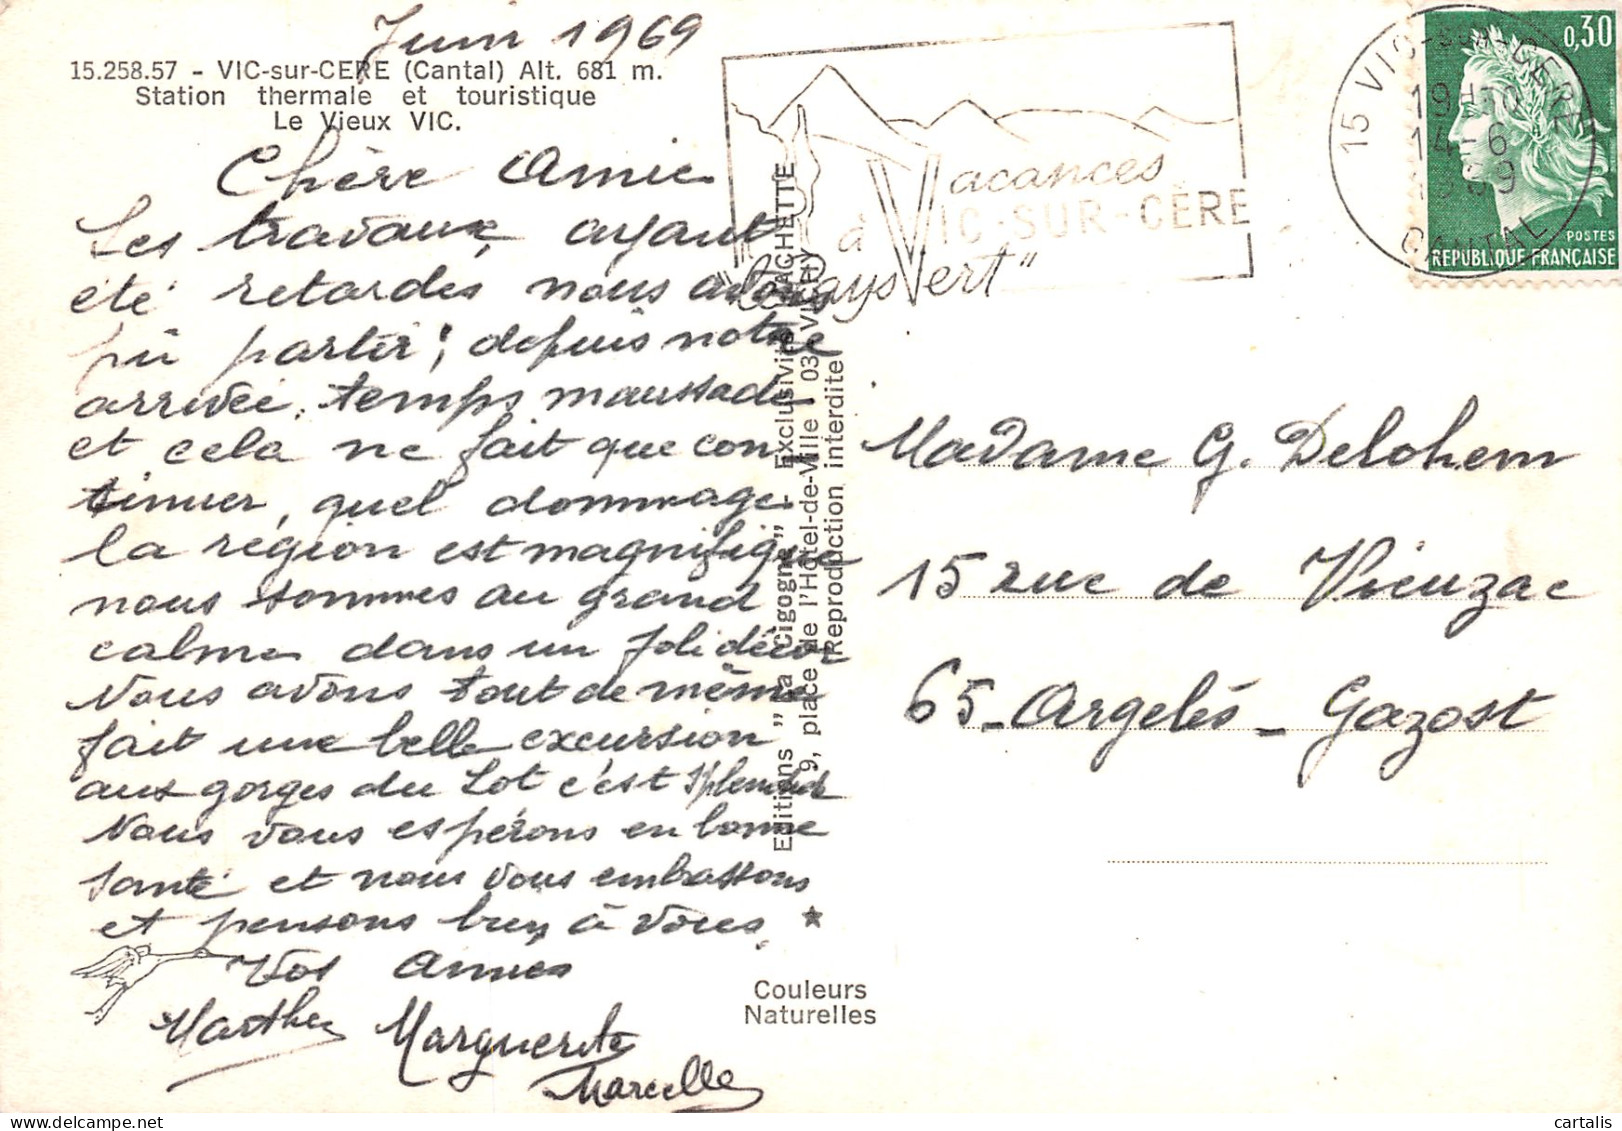 Juin 1969
15.258.57 - VIC-sur-CERE (Cantal) Alt. 681 m.
Station thermale et touristique
Le Vieux VIC.
Chère Amie
Les travaux, ayant
été retardés, nous avons
pû partir ; depuis notre
arrivée, temps maussade
et cela ne fait que con
tinuer, quel dommage
la région est magnifique
nous sommes au grand
calme dans un joli décor
Nous avons tout de même
fait une belle excursion
aux gorges du Lot c'est splendide
Nous vous espérons en bonne
santé et nous vous embrassons
et pensons bien à vous.
Vos Amies
Marthe Marguerite
Marcelle
Editions "La Cigogne" - Exclusivité HACHETTE
9, place de l'Hôtel-de-Ville 03 VICHY
Reproduction interdite
Couleurs
Naturelles
Vacances
à VIC-SUR-CÈRE
le "Pays Vert"
15 VIC-SUR-CERE
19H30
14-6
1969
CANTAL
0,30
POSTES
REPUBLIQUE FRANÇAISE
Madame G. Delohem
15 rue de Vieuzac
65-Argelès-Gazost
cartalis
delcampe.net